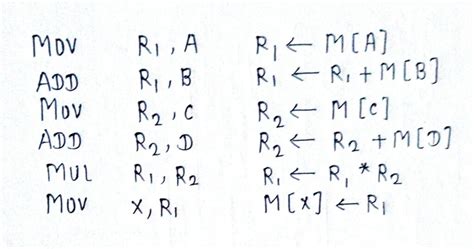 MOV R1, A R1 ← M[A]
ADD R1, B R1 ← R1 + M[B]
MOV R2, C R2 ← M[C]
ADD R2, D R2 ← R2 + M[D]
MUL R1, R2 R1 ← R1 * R2
MOV X, R1 M[X] ← R1